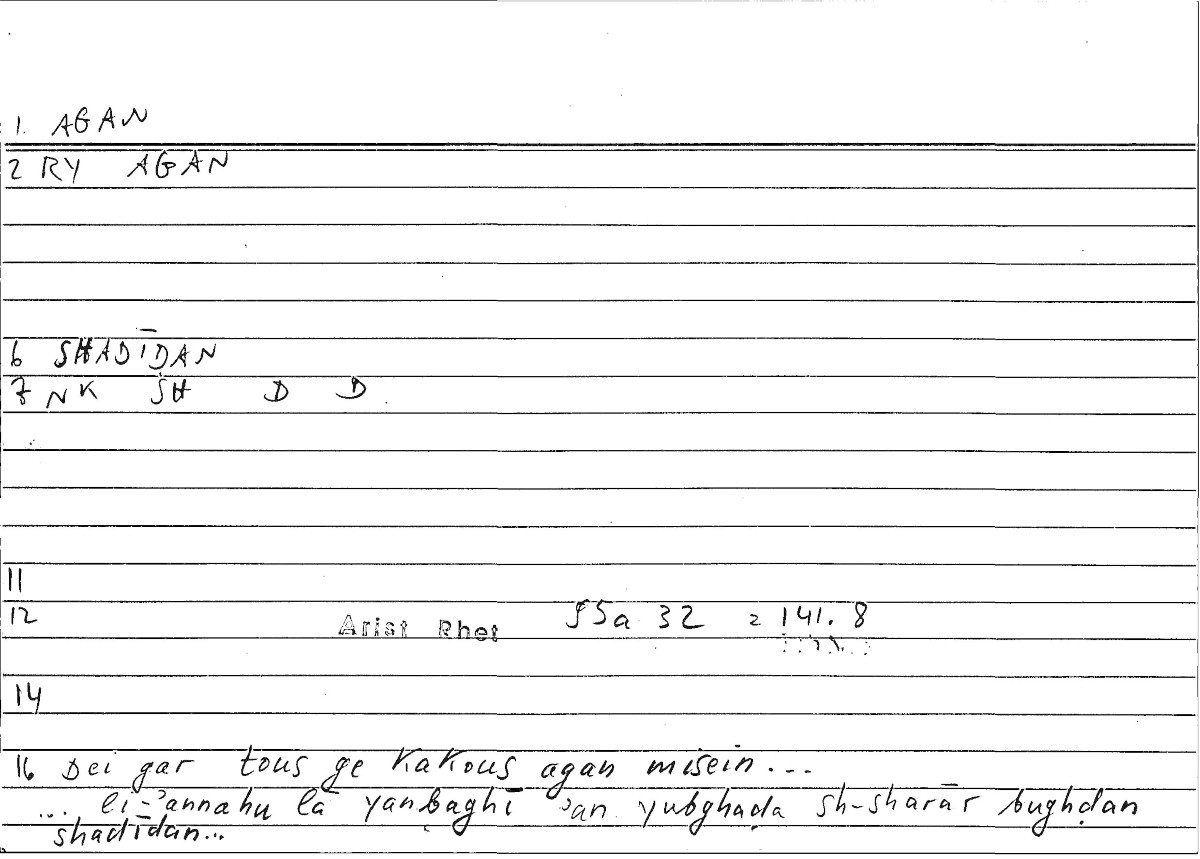 1. AGAN
2 RY AGAN
6 SHADĪDAN
7 NK SH D D
11
12 Arist Rhet 95a 32 = 141.8
14
16 Dei gar tous ge kakous agan misein...
... li-ʾannahu lā yanbaghī ʾan yubghaḍa sh-sharār bughḍan
shadīdan...